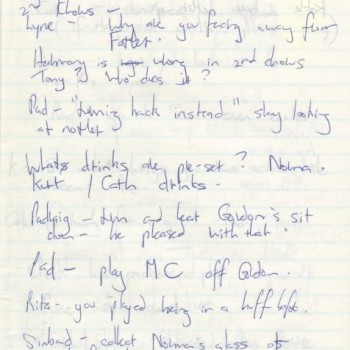 2nd Chorus -
Lyne - Why are you facing away from
Father.
Harmony is wrong in 2nd chorus
Tony? Who does it?
Pad - "turning back instead" stay looking
at
Whats drinks are pre-set? Norma.
Kurt / Cath drinks -
Padraig - turn and Gordon's sit
down - be pleased with that.
Pad - play MC off Gordon.
Rita - you played being in a huff before.
Sinbad - collect Norma's glass